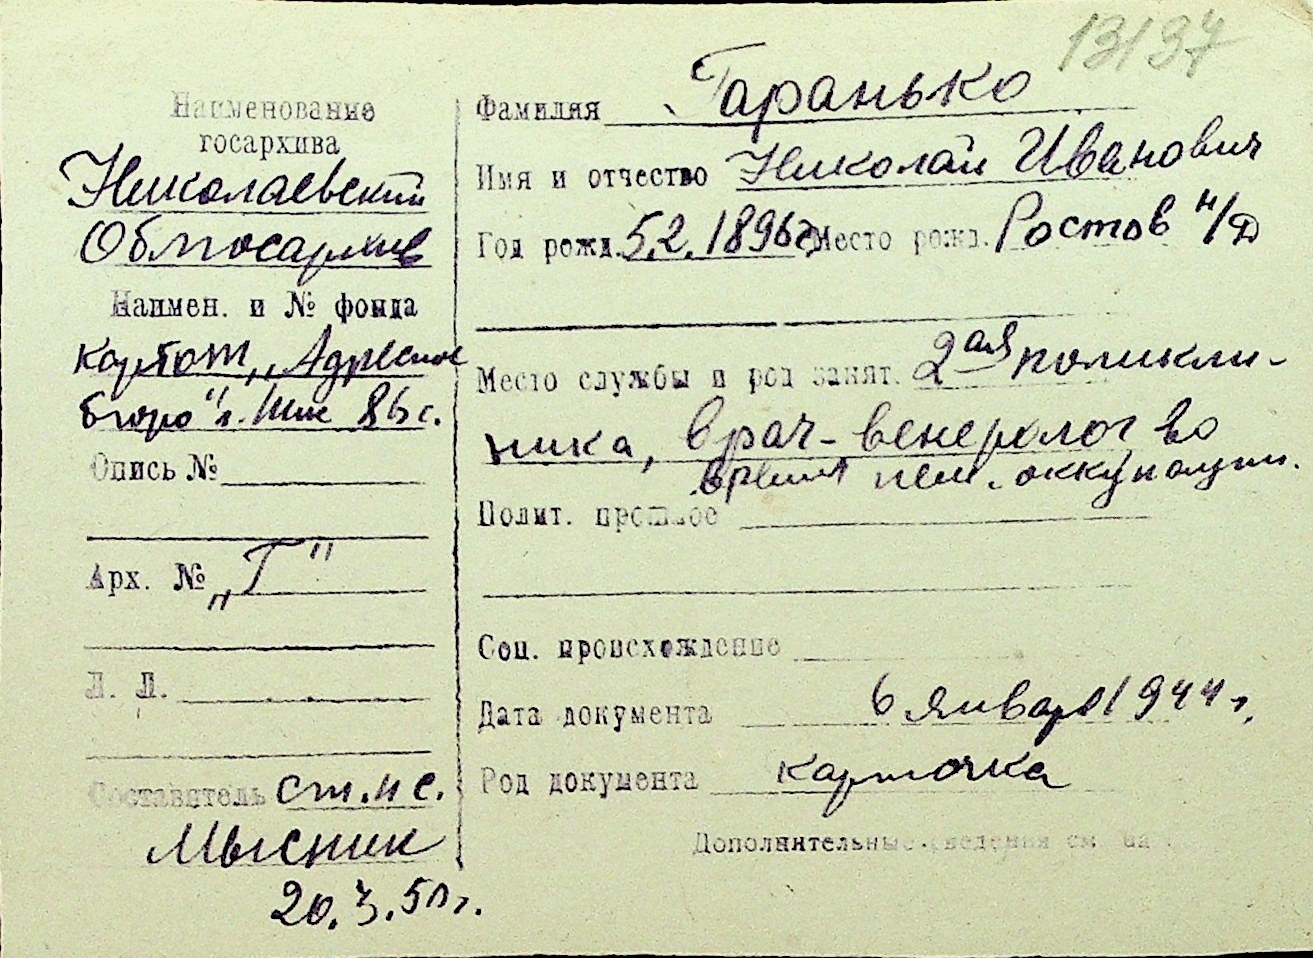 13137
Наименование
госархива
Николаевский
Облгосархив
Наимен. и № фонда
картот. „Адресное
бюро" г.
Опись №
Арх. № „Г"
Л. Л.
Составитель ст. н с.
Мысник
20.3.50 г.
Фамилия Гаранько
Имя и отчество Николай Иванович
Год рожд. 5.2.1896 г. Место рожд. Ростов н/Д
Место службы и род занят. 2ая поликли-
ника, врач-венеролог во
время нем. оккупации.
Полит. прошлое
Соц. происхождение
Дата документа 6 января 1944 г.
Род документа карточка
Дополнительные сведения см. на